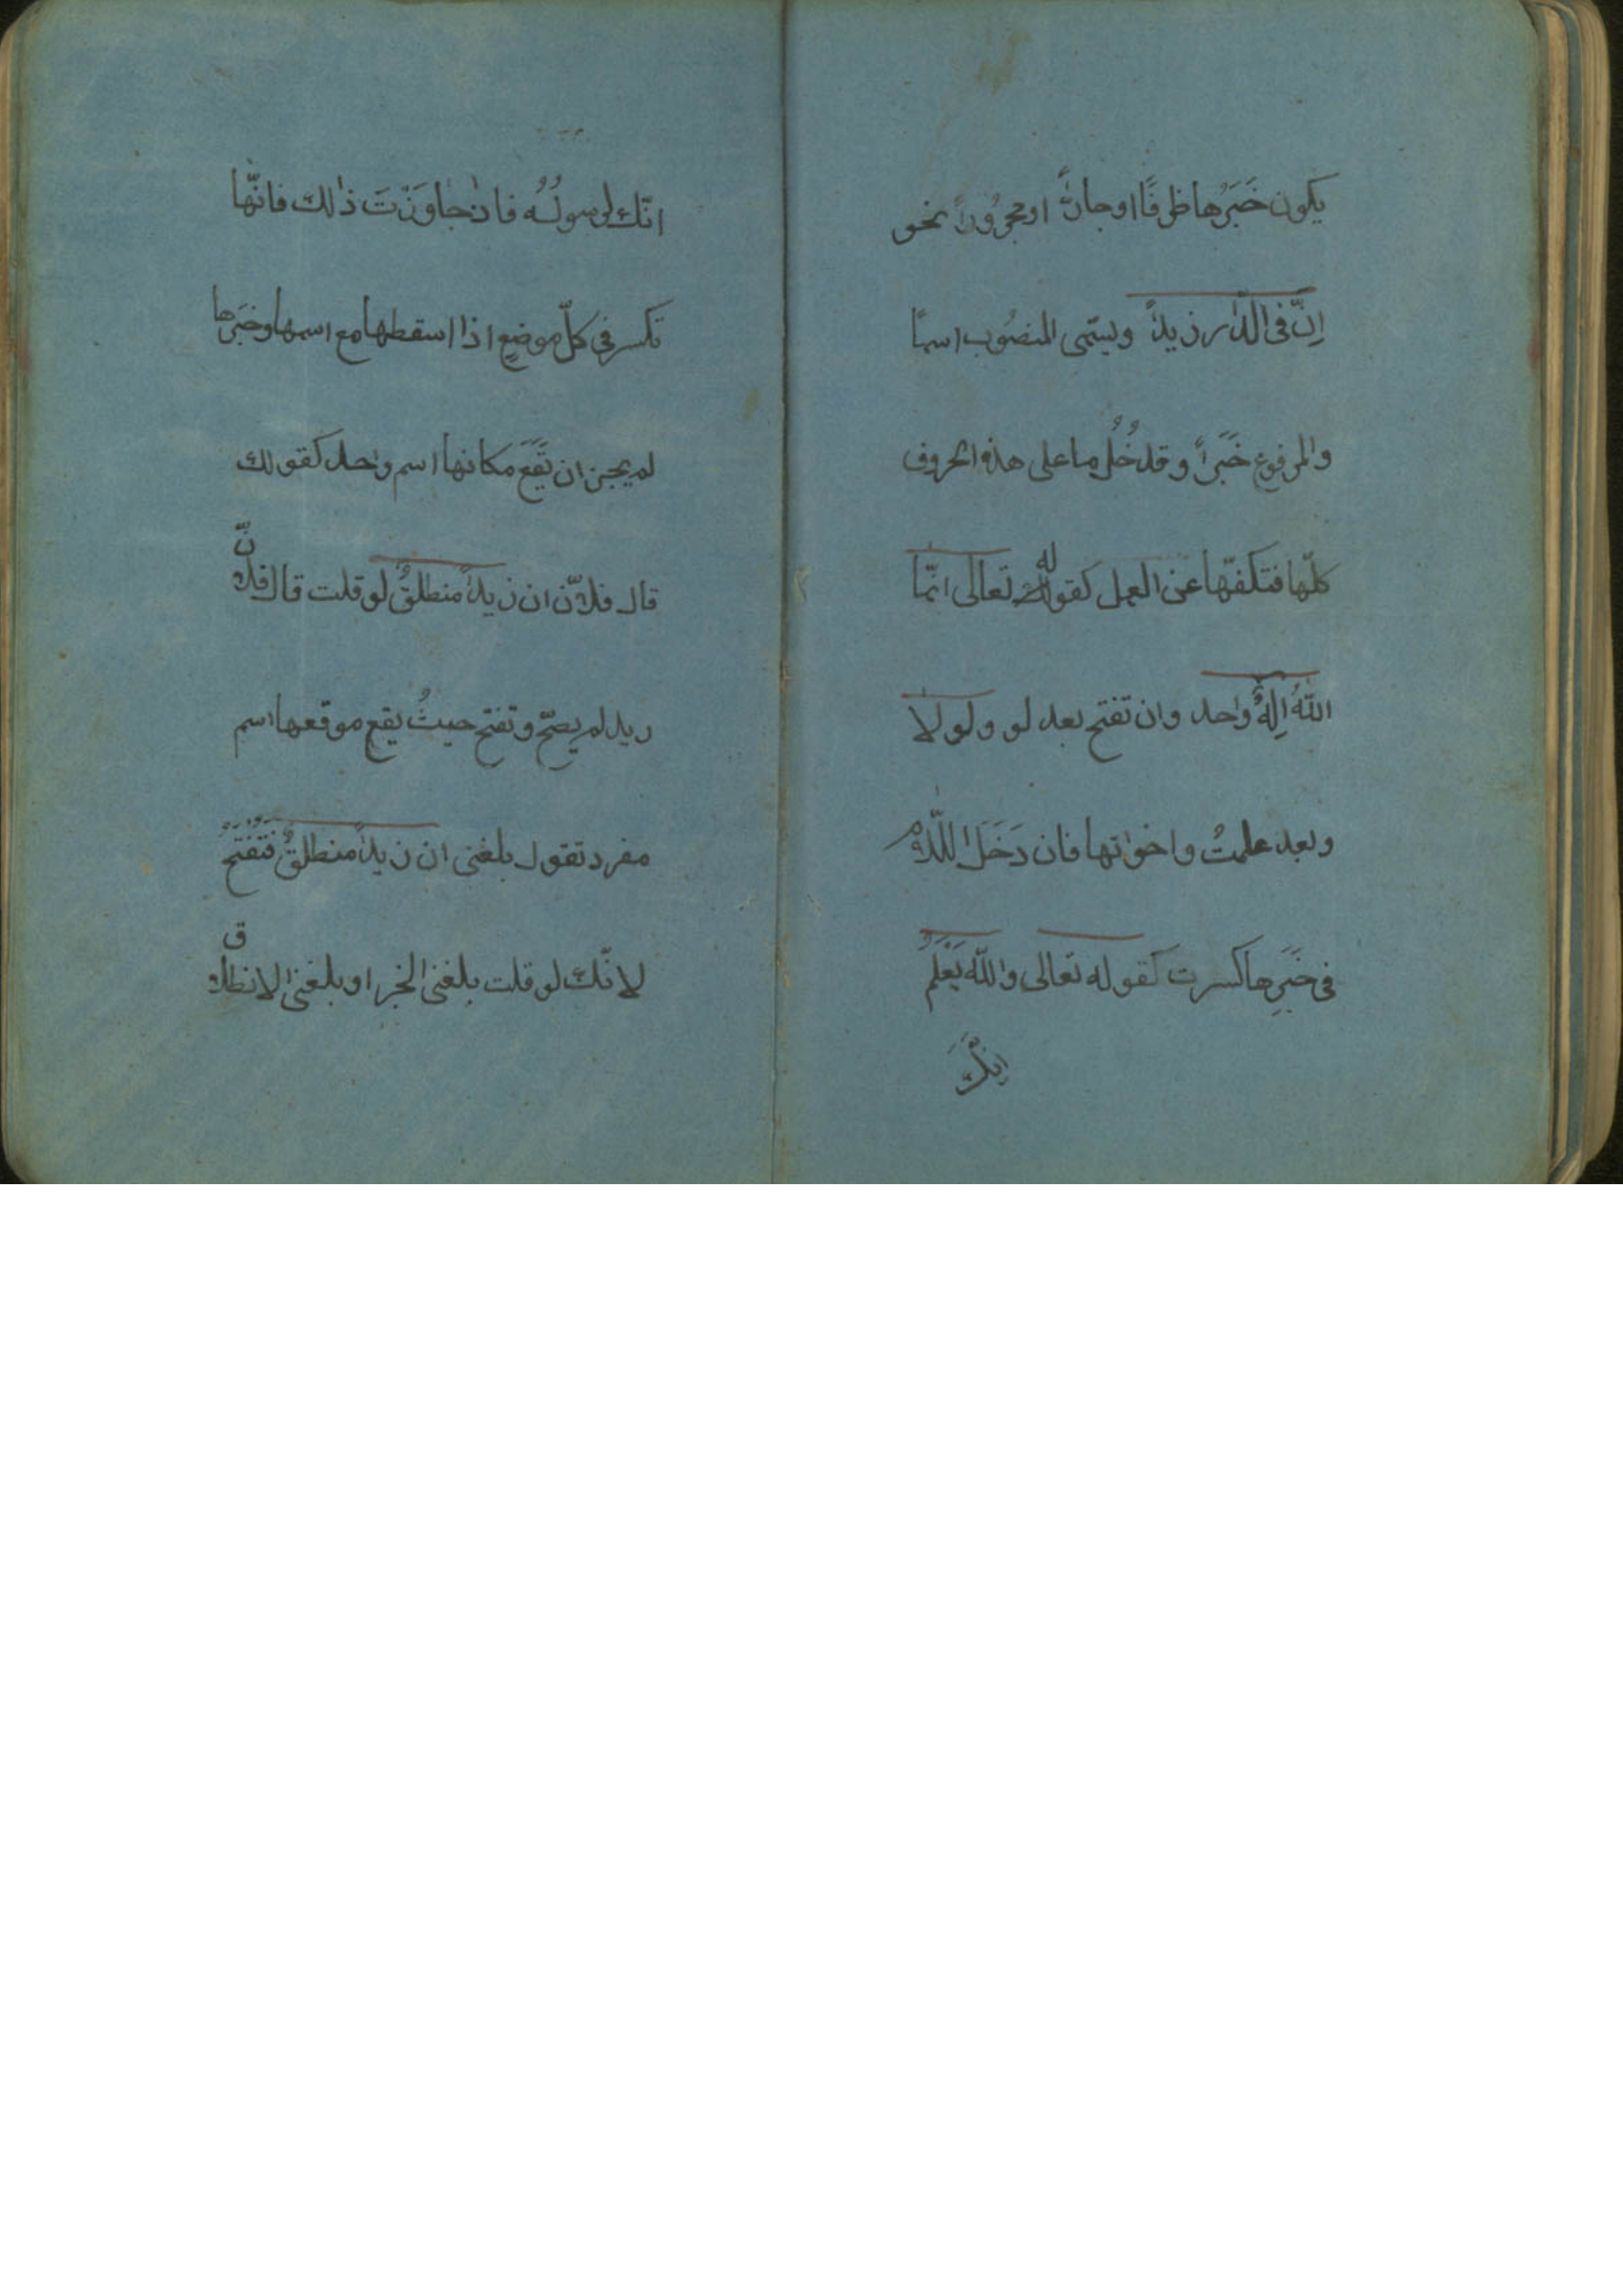 يكون خَبَرُها ظرفًا او جارًّا او مجرُورًا نحو
اِنّ فی الدّار زيداً ويسَمّى المنصُوب اسمًا
والمرفوع خَبَراً وقد دخُلُ ما على هذه الحروف
كلّها فتكفّها عن العمل كقوله تعالى انّما
اللّهُ اِلهٌ واحد وان تفتح بعد لو ولولا
وبعد علمتُ واخواتها فان دَخَلَ اللّام
فى خَبَرِها كسرت كقوله تعالى واللّه يَعْلَمُ
اِنَّكَ
انّك لرسولُهُ فان جاوَزْتَ ذالك فانّها
تكسر فى كلّ موضعٍ اذا اسقطها مع اسمها وخبَرها
لم يجز ان تَقَعَ مكانها اسم واحد كقولك
قال فلانّ ان زيداً منطلقٌ لو قلت قال فلانّ
ريد لم يصحّ وتفتح حيثُ يقع موقعها اسم
مفرد تقول بلغنى ان زيداً منطلقٌ فَتَفْتَحُ
لانّك لو قلت بلغنى الخبر او بلغنى الانطلاق